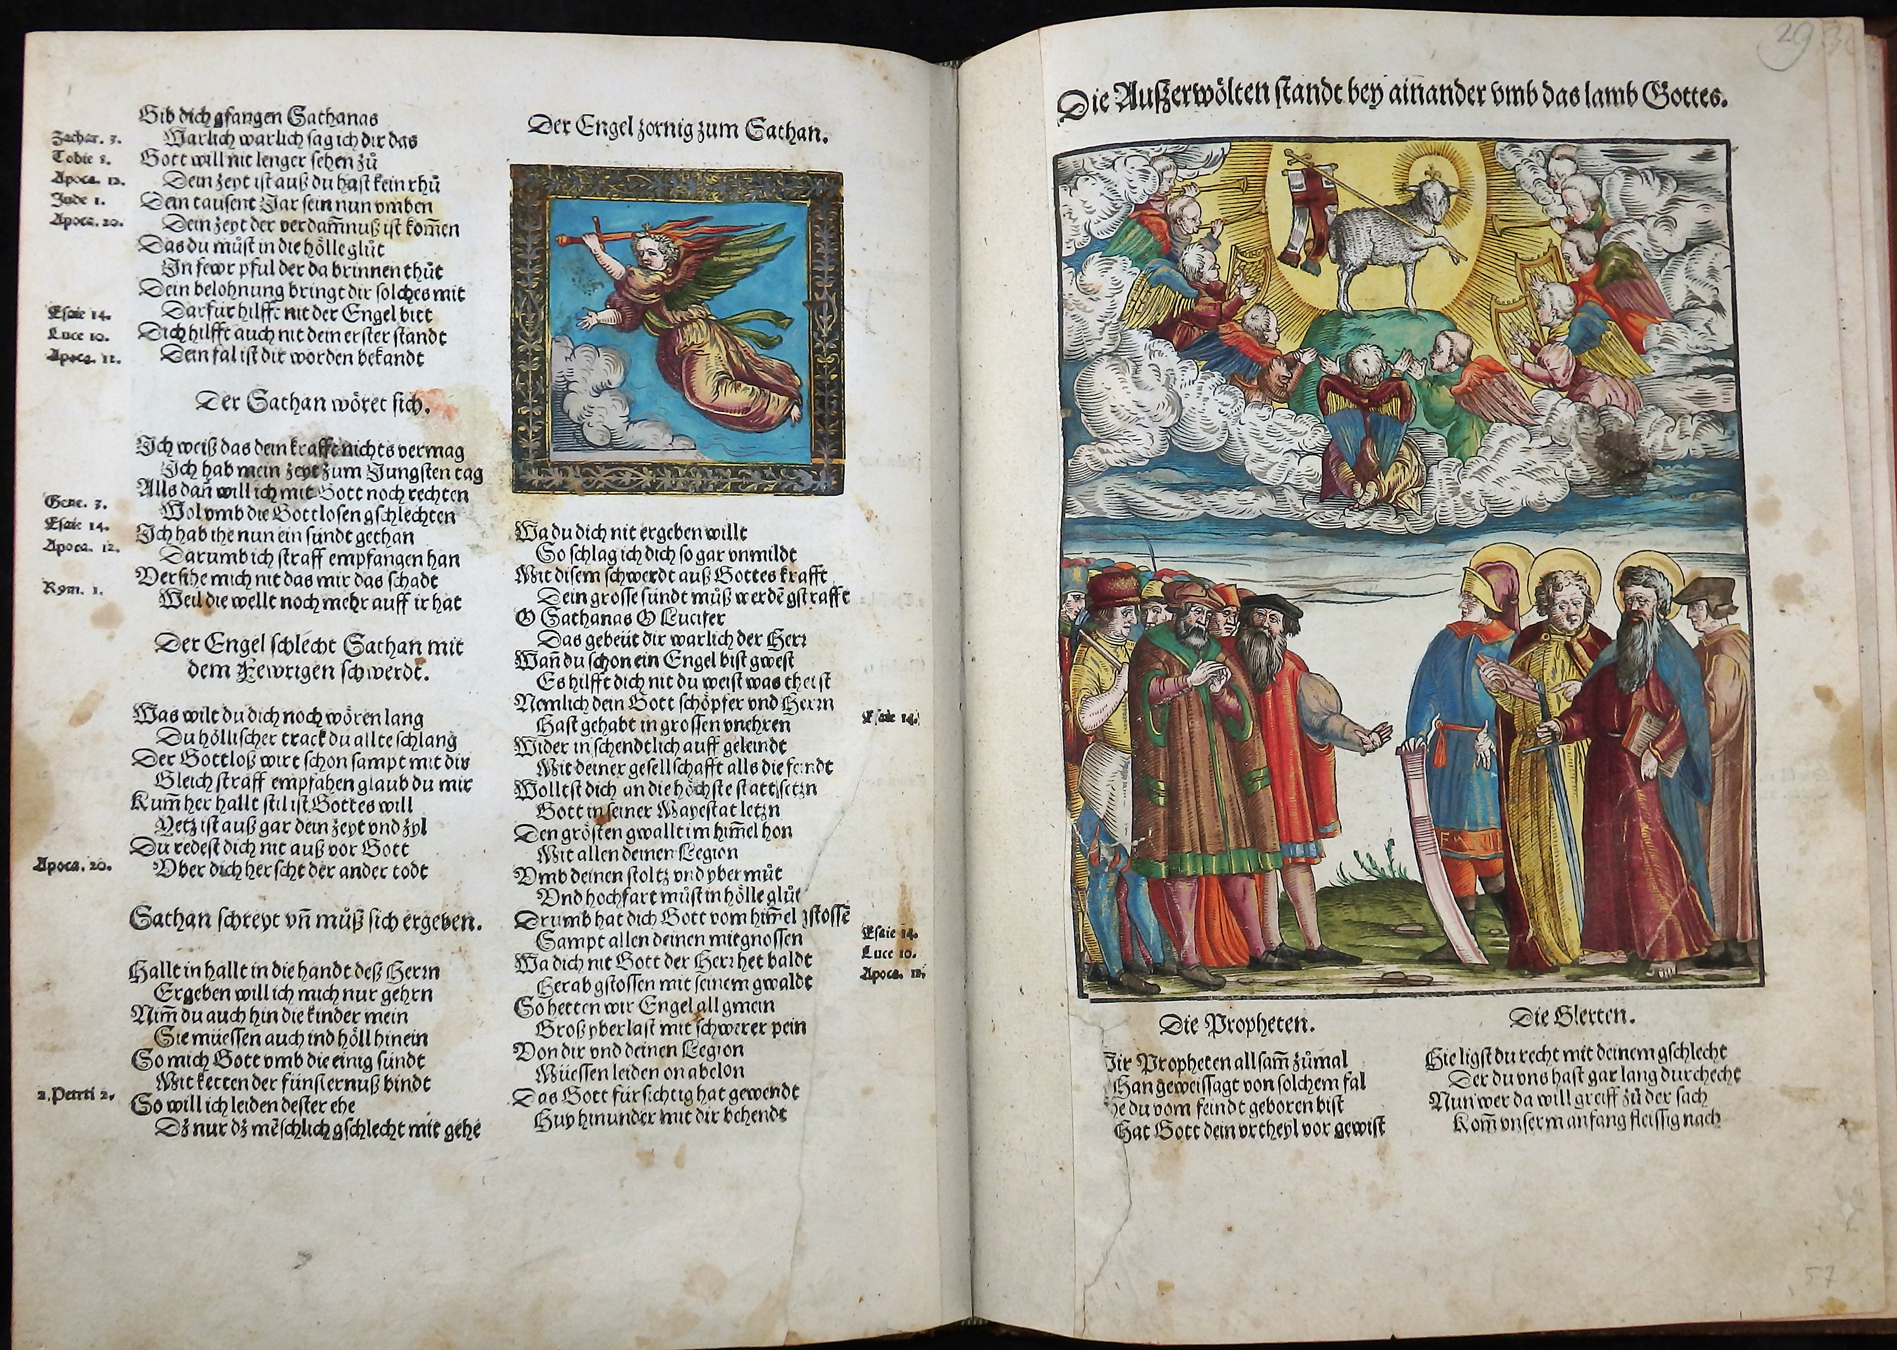 Gib dich gfangen Sathanas
Zachar. 3. Warlich warlich sag ich dir das
Tobie 8. Gott will nit lenger sehen zů
Apoca. 12. Dein zeyt ist auß du hast kein rhů
Jude 1. Dein tausent Jar sein nun vmben
Apoca. 20. Dein zeyt der verdam̃nuß ist kom̃en
Das du můst in die hölle glůt
In fewr pful der da brinnen thůt
Dein belohnung bringt dir solches mit
Esaie 14. Darfür hilfft nit der Engel bitt
Luce 10. Dich hilfft auch nit dein erster standt
Apoca. 12. Dein fal ist dir worden bekandt
Der Sathan wöret sich.
Ich weiß das dein krafft nichts vermag
Ich hab mein zeyt zum Jungsten tag
Alls dañ will ich mit Gott noch rechten
Gene. 3. Wol vmb die Gottlosen gschlechten
Esaie 14. Ich hab ihe nun ein sündt gethan
Apoca. 12. Darumb ich straff empfangen han
Versihe mich nit das mir das schadt
Rom. 1. Weil die wellt noch mehr auff ir hat
Der Engel schlecht Sathan mit
dem Fewrigen schwerdt.
Was wilt du dich noch wören lang
Du höllischer track du allte schlang
Der Gottloß wirt schon sampt mit dir
Gleich straff empfahen glaub du mir
Kum̃ her hallt stil ist Gottes will
Yetz ist auß gar dein zeyt vnd zyl
Du redest dich nit auß vor Gott
Apoca. 20. Vber dich herscht der ander todt
Sathan schreyt vñ můß sich ergeben.
Hallt in hallt in die handt deß Herrn
Ergeben will ich mich nur gehrn
Nim̃ du auch hin die kinder mein
Sie müessen auch ind höll hinein
So mich Gott vmb die einig sündt
Mit ketten der fünsternuß bindt
2. Petri 2. So will ich leiden dester ehe
Dz nur dz mēschlich gschlecht mit gehe
Der Engel zornig zum Sathan.
Wa du dich nit ergeben willt
So schlag ich dich so gar vnmildt
Mit disem schwerdt auß Gottes krafft
Dein grosse sündt můß werdē gstrafft
O Sathanas O Lucifer
Das gebeüt dir warlich der Herr
Wañ du schon ein Engel bist gwest
Es hilfft dich nit du weist was the ist
Nemlich dein Gott schöpfer vnd Herrn
Hast gehabt in grossen vnehren Esaie 14.
Wider in schendtlich auff geleindt
Mit deiner gesellschafft alls die feindt
Wolltst dich an die höchste statt setzn
Gott in seiner Mayestat letzn
Den grösten gwallt im him̃el hon
Mit allen deinen Legion
Vmb deinen stoltz vnd yber můt
Vnd hochfart můst in hölle glůt
Drumb hat dich Gott vom him̃el gstossē
Sampt allen deinen mitgnossen Esaie 14.
Wa dich nit Gott der Herr het baldt Luce 10.
Herab gstossen mit seinem gwaldt Apoca. 12.
So hetten wir Engel all gmein
Groß yberlast mit schwerer pein
Von dir vnd deinen Legion
Müessen leiden on abelon
Das Gott fürsichtig hat gewendt
Huy hinunder mit dir behendt
29
Die Außerwölten standt bey ainander vmb das lamb Gottes.
Die Propheten.
Jir Propheten all sam̃ zůmal
Han geweissagt von solchem fal
he du vom feindt geboren bist
Hat Gott dein vrtheyl vor gewist
Die Glerten.
Hie ligst du recht mit deinem gschlecht
Der du vns hast gar lang durchecht
Nun wer da will greiff zů der sach
Kom̃ vnserm anfang fleissig nach
57